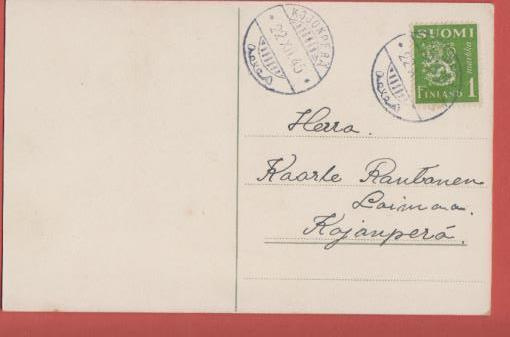 KOJONPERÄ
22.XII.43
SUOMI
markka
FINLAND 1
Herra.
Kaarle Rautanen
Loimaa.
Kojonperä.